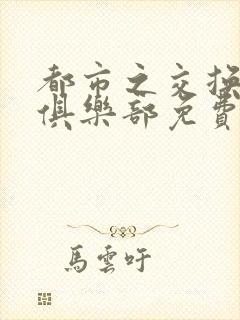 都市之交换
俱樂部免費
馬雲吁